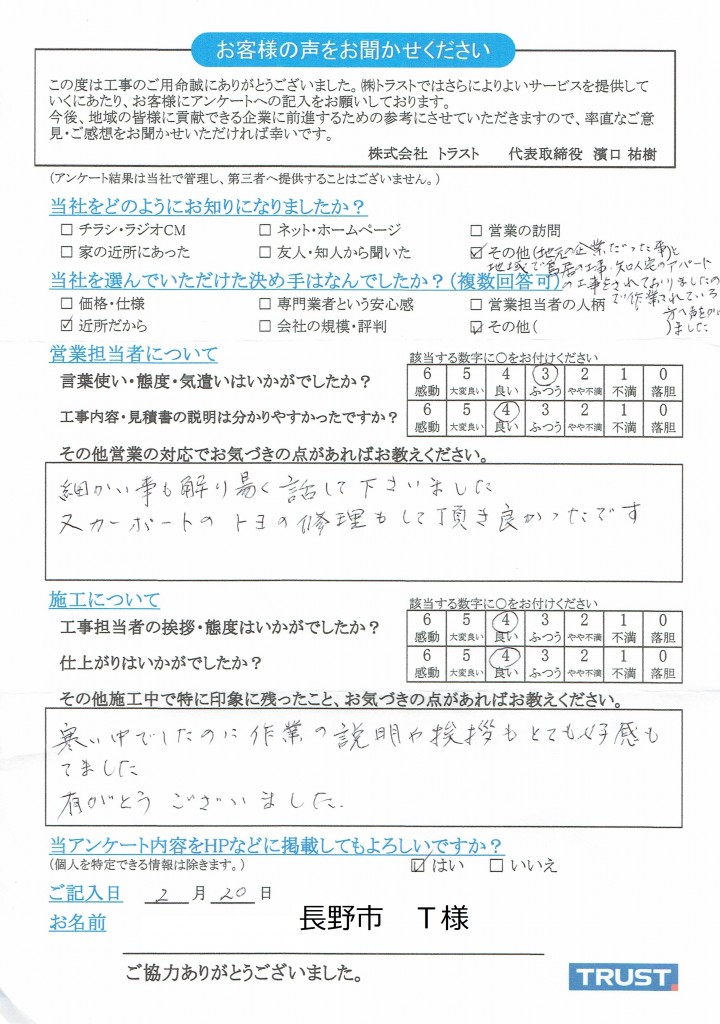 お客様の声をお聞かせください
この度は工事のご用命誠にありがとうございました。㈱トラストではさらによりよいサービスを提供して
いくにあたり、お客様にアンケートへの記入をお願いしております。
今後、地域の皆様に貢献できる企業に前進するための参考にさせていただきますので、率直なご意
見・ご感想をお聞かせいただければ幸いです。
株式会社 トラスト 代表取締役 濱口 祐樹
(アンケート結果は当社で管理し、第三者へ提供することはございません。)
当社をどのようにお知りになりましたか？
□ チラシ・ラジオCM □ ネット・ホームページ □ 営業の訪問
□ 家の近所にあった □ 友人・知人から聞いた ☑ その他(地元の企業だった事)と
地域で 工事、知人宅のアパート
当社を選んでいただけた決め手はなんでしたか？(複数回答可)
の工事をされておりましたの
□ 価格・仕様 □ 専門業者という安心感 □ 営業担当者の人柄
で作業されている
☑ 近所だから □ 会社の規模・評判 ☑ その他( )
方へ声をかけ
ました
営業担当者について
該当する数字に○をお付けください
言葉使い・態度・気遣いはいかがでしたか？
6 5 4 3 2 1 0
感動 大変良い 良い ふつう やや不満 不満 落胆
工事内容・見積書の説明は分かりやすかったですか？
6 5 4 3 2 1 0
感動 大変良い 良い ふつう やや不満 不満 落胆
その他営業の対応でお気づきの点があればお教えください。
細かい事も解り易く話して下さいました
又カーポートのトヨの修理もして頂き良かったです
施工について
該当する数字に○をお付けください
工事担当者の挨拶・態度はいかがでしたか？
6 5 4 3 2 1 0
感動 大変良い 良い ふつう やや不満 不満 落胆
仕上がりはいかがでしたか？
6 5 4 3 2 1 0
感動 大変良い 良い ふつう やや不満 不満 落胆
その他施工中で特に印象に残ったこと、お気づきの点があればお教えください。
寒い中でしたのに作業の説明や挨拶もとても好感も
てました
有がとうございました.
当アンケート内容をHPなどに掲載してもよろしいですか？
(個人を特定できる情報は除きます。)
☑ はい □ いいえ
ご記入日 2 月 20 日
お名前 長野市 T様
ご協力ありがとうございました。
TRUST.